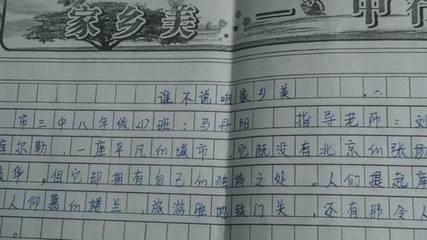 家乡美
谁不说咱家乡美
市三中八年级 班:马丹阳 指导老师:刘
库尔勒,一座平凡的城市,它既没有北京的张扬
华,但它却拥有自己的独特之处。人们提起库
人仰慕的楼兰,旅游胜地铁门关,还有那令人